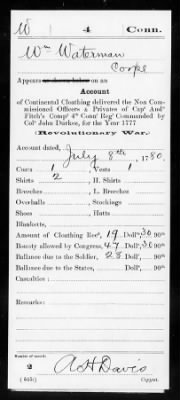 W | 4 | Conn.
Wm Waterman
Corpl
Appears as shown below on an
Account
of Continental Cloathing delivered the Non Com-
missioned Officers & Privates of Capt And^w
Fitch's Comp^y 4th Conn Reg^t Commanded by
Col^o John Durkee, for the Year 1777
(Revolutionary War.)
Account dated,
July 8th, 1780.
Coats 1, Vests 1
Shirts 2, H. Shirts
Breeches, L. Breeches
Overhalls, Stockings
Shoes, Hatts
Blanketts,
Amount of Cloathing Rec^d, 19 Doll^s, 30 90th
Bounty allowed by Congress, 47 Doll^s, 30 90th
Ballance due to the Soldier, 28 Doll^s, 90th
Ballance due to the States, Doll^s, 90th
Casualties:
Remarks:
Number of records:
2
A H Davis
(645c) Copyist.